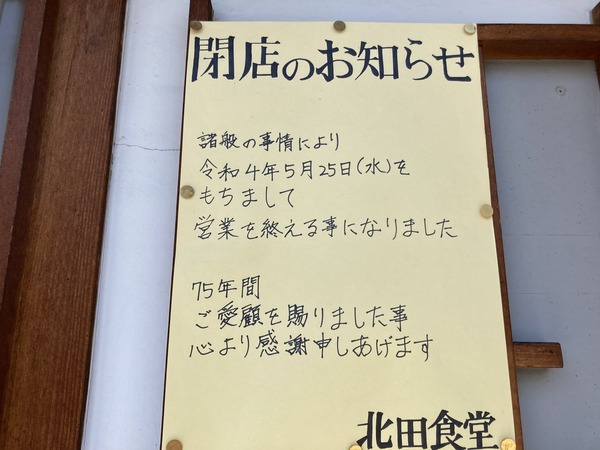 閉店のお知らせ
諸般の事情により
令和4年5月25日(水)を
もちまして
営業を終える事になりました
75年間
ご愛顧を賜りました事
心より感謝申しあげます
北田食堂